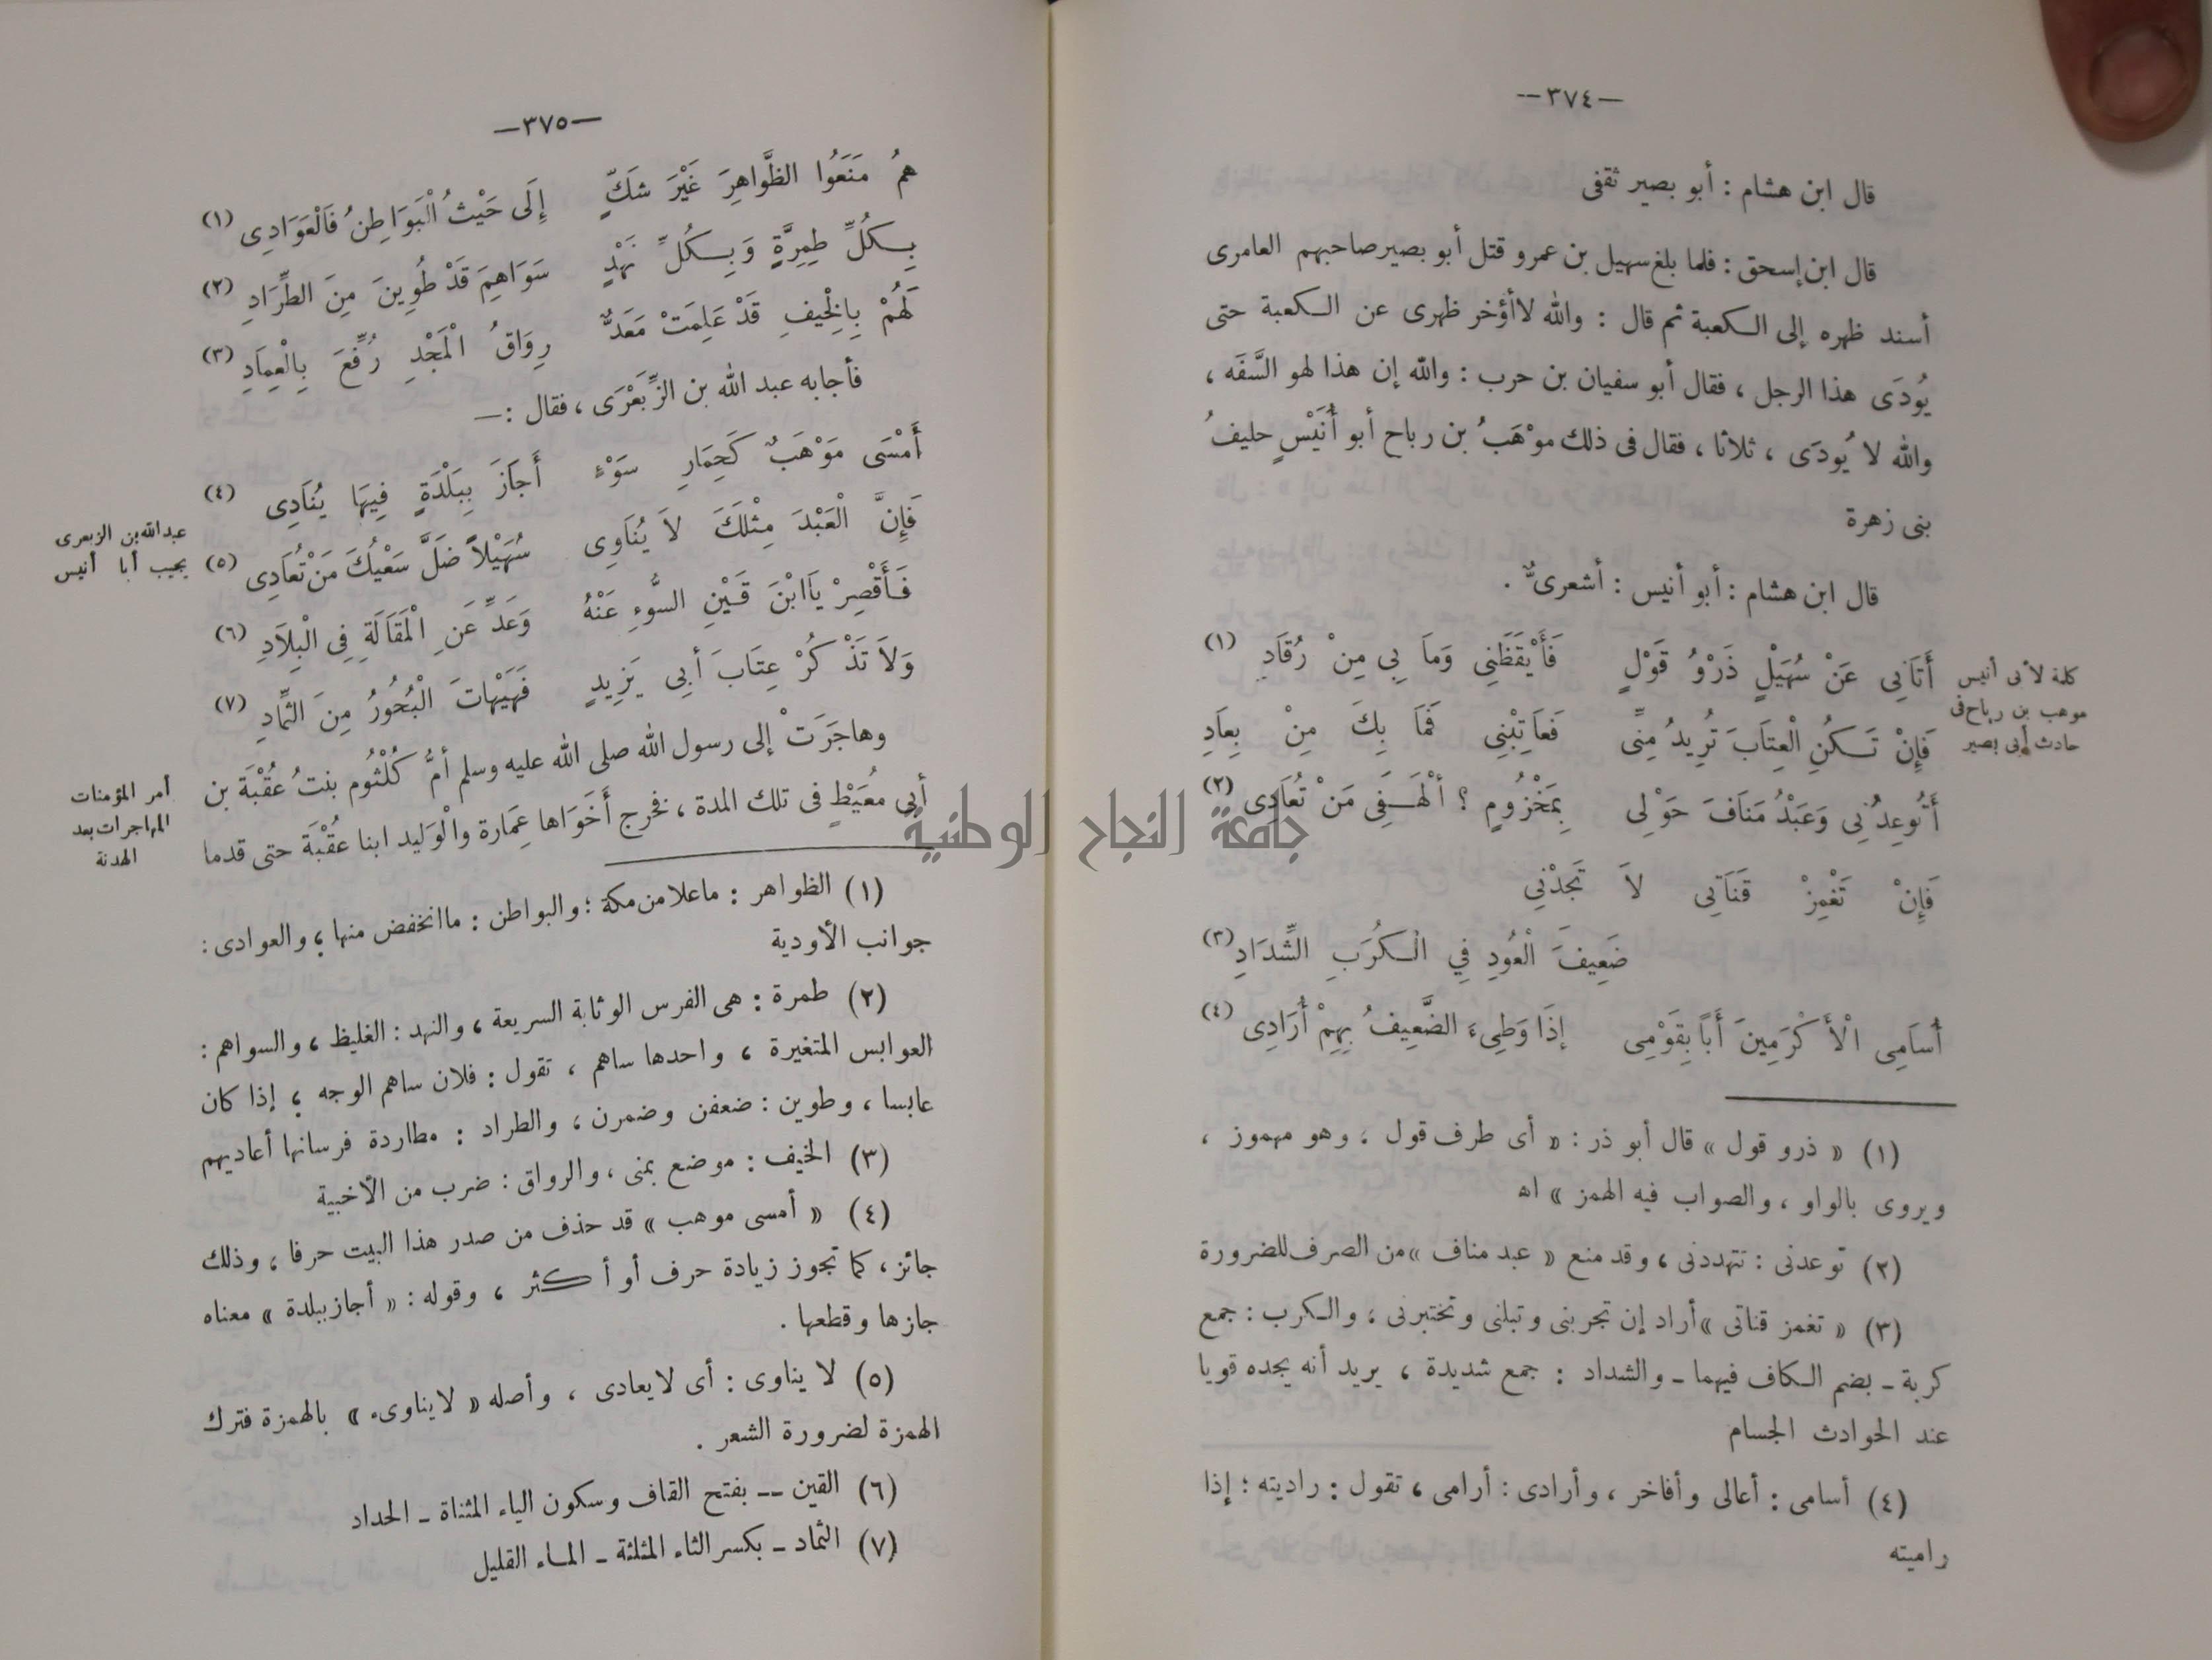 —٣٧٤—
قال ابن هشام : أبو بصير ثقفى
قال ابن إسحق : فلما بلغ سهيل بن عمرو قتل أبو بصير صاحبهم العامرى
أسند ظهره إلى الكعبة ثم قال : والله لا أؤخر ظهرى عن الكعبة حتى
يُودَى هذا الرجل ، فقال أبو سفيان بن حرب : والله إن هذا لهو السَّفَه ،
والله لا يُودَى ، ثلاثا ، فقال فى ذلك مَوْهَبُ بن رباح أبو أُنَيْسٍ حليفُ
بنى زهرة
قال ابن هشام : أبو أنيس : أشعرىٌّ .
أَتَانِى عَنْ سُهَيْلٍ ذَرْوُ قَوْلٍ فَأَيْقَظَنِى وَمَا بِى مِنْ رُقَادِ (١)
فَإِنْ تَكُنِ الْعِتَابَ تُرِيدُ مِنِّى فَعَاتِبْنِى فَمَا بِكَ مِنْ بِعَادِ
أَتُوعِدُنِى وَعَبْدُ مَنَافَ حَوْلِى بِمَخْزُومٍ ؟ أَلْهَفِى مَنْ تُعَادِى (٢)
فَإِنْ تَغْمِزْ قَنَاتِى لاَ تَجِدْنِى
ضَعِيفَ الْعُودِ فِي الْكُرَبِ الشِّدَادِ (٣)
أُسَامِى الْأَكْرَمِينَ أَبًا بِقَوْمِى إِذَا وَطِىءَ الضَّعِيفُ بِهِمْ أُرَادِى (٤)
كلمة لأبى أنيس
موهب بن رباح فى
حادث أبى بصير
(١) « ذرو قول » قال أبو ذر : « أى طرف قول ؛ وهو مهموز ،
ويروى بالواو ، والصواب فيه الهمز » اه
(٢) توعدنى : تتهددنى ، وقد منع « عبد مناف » من الصرف للضرورة
(٣) « تغمز قناتى » أراد إن تجربنى وتبلنى وتختبرنى ؛ والكرب : جمع
كربة ـ بضم الكاف فيهما ـ والشداد : جمع شديدة ، يريد أنه يجده قويا
عند الحوادث الجسام
(٤) أسامى : أعالى وأفاخر ، وأرادى : أرامى ، تقول : راديته ؛ إذا
راميته
—٣٧٥—
هُمُ مَنَعُوا الظَّوَاهِرَ غَيْرَ شَكٍّ إِلَى حَيْثُ الْبَوَاطِنُ فَالْعَوَادِى (١)
بِكُلِّ طِمِرَّةٍ وَبِكُلِّ نَهْدٍ سَوَاهِمَ قَدْ طُوِينَ مِنَ الطِّرَادِ (٢)
لَهُمْ بِالْخِيفِ قَدْ عَلِمَتْ مَعَدٌّ رِوَاقُ الْمَجْدِ رُفِّعَ بِالْعِمَادِ (٣)
فأجابه عبد الله بن الزِّبَعْرَى ، فقال :—
أَمْسَى مَوْهَبٌ كَحِمَارِ سَوْءٍ أَجَازَ بِبَلْدَةٍ فِيهَا يُنَادِى (٤)
فَإِنَّ الْعَبْدَ مِثْلَكَ لاَ يُنَاوِى سُهَيْلاً ضَلَّ سَعْيُكَ مَنْ تُعَادِى (٥)
فَأَقْصِرْ يَا ابْنَ قَيْنِ السُّوءِ عَنْهُ وَعَدِّ عَنِ الْمَقَالَةِ فِى الْبِلَادِ (٦)
وَلاَ تَذْكُرْ عِتَابَ أَبِى يَزِيدٍ فَهَيْهَاتَ الْبُحُورُ مِنَ الثِّمَادِ (٧)
وهاجَرَتْ إلى رسول الله صلى الله عليه وسلم أمُّ كُلْثُوم بنتُ عُقْبَة بن
أبى مُعَيْطٍ فى تلك المدة ، فخرج أَخَوَاها عِمَارة والْوَليد ابنا عُقْبَة حتى قدما
عبدالله بن الزبعرى
يجيب أبا أنيس
أمر المؤمنات
المهاجرات بعد
الهدنة
(١) الظواهر : ما علا من مكة ؛ والبواطن : ما انخفض منها ؛ والعوادى :
جوانب الأودية
(٢) طمرة : هى الفرس الوثابة السريعة ، والنهد : الغليظ ، والسواهم :
العوابس المتغيرة ، واحدها ساهم ، تقول : فلان ساهم الوجه ؛ إذا كان
عابسا ، وطوين : ضعفن وضمرن ، والطراد : مطاردة فرسانها أعاديهم
(٣) الخيف : موضع بمنى ، والرواق : ضرب من الأخبية
(٤) « أمسى موهب » قد حذف من صدر هذا البيت حرفا ، وذلك
جائز ، كما تجوز زيادة حرف أو أكثر ، وقوله : « أجاز ببلدة » معناه
جازها وقطعها .
(٥) لا يناوى : أى لا يعادى ، وأصله « لا يناوىء » بالهمزة فترك
الهمزة لضرورة الشعر .
(٦) القين ــ بفتح القاف وسكون الياء المثناة ـ الحداد
(٧) الثماد ـ بكسر الثاء المثلثة ـ الماء القليل
جامعة النجاح الوطنية